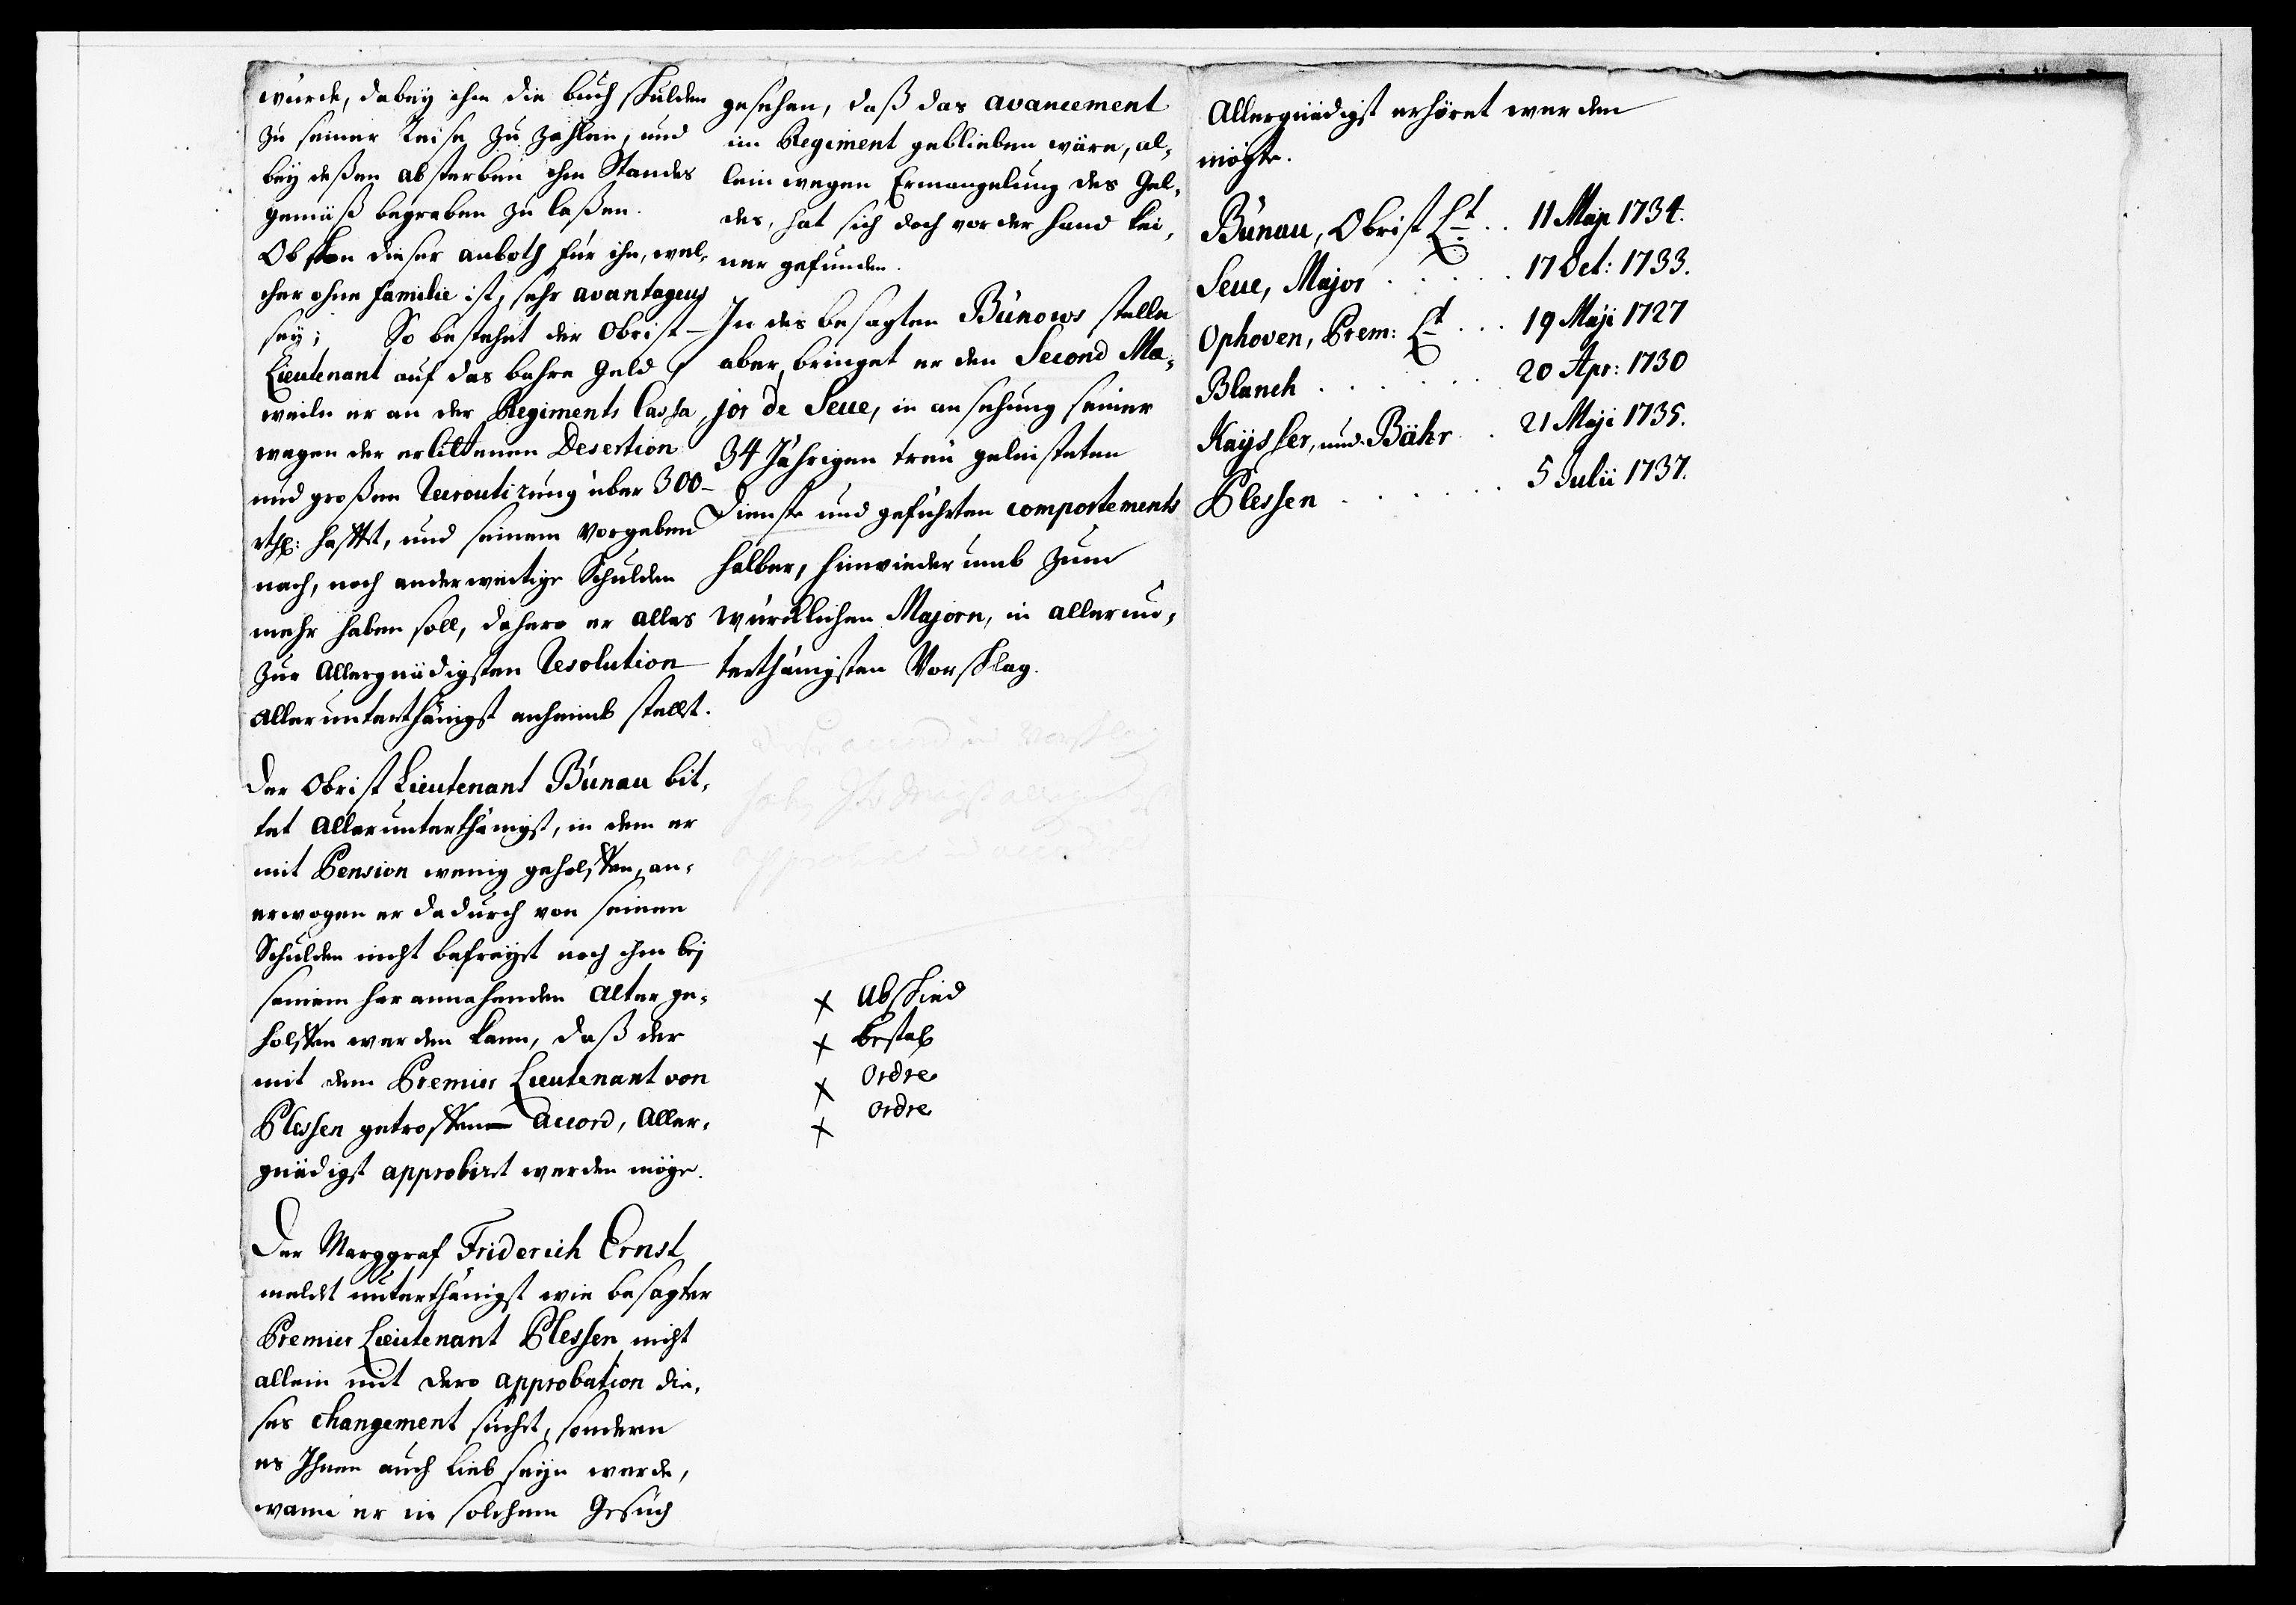 würde, dabey ihm die buch schulden
zu seiner Reise zu zahlen, und
bey deßen absterben ihn Standes
gemäß begraben zu laßen.
Obschon dieser anboth für ihn, wel-
cher ohne familie ist, sehr avantageus
sey; So bestehet der Obrist-
Lieutenant auf das bahre Geld
weiln er an der Regiments Cassa,
wegen der erlittenen Desertion
und großen Recroutirung über 300-
rthl: hafftet, und seinem Vorgeben
nach, noch anderweitige Schulden
mehr haben soll, dahero er alles
zur Allergnädigsten Resolution
allerunterthänigst anheimb stellt.
Der Obrist Lieutenant Bünau bit-
tet allerunterthänigst, in dem er
mit Pension wenig geholffen, an-
erwogen er dadurch von seinen
Schulden nicht befreyet noch ihm bey
seinem herannahenden Alter ge-
holffen werden kann, daß der
mit dem Premier Lieutenant von
Plessen getroffene accord, Aller-
gnädigst approbiret werden möge.
Der Marggraf Friderich Ernst
meldet unterthänigst wie besagter
Premier Lieutenant Plessen nicht
allein mit dero approbation die-
ses changement suchet, sondern
es Ihnen auch lieb seyn werde,
wann er in solchem Gesuch
gesehen, daß das avancement
im Regiment geblieben wäre, al-
lein wegen Ermangelung des Gel-
des, hat sich doch vor der hand kei-
ner gefunden.
In des besagten Bünows stelle
aber, bringet er den Second Ma-
jor de Seue, in ansehung seiner
34 Jährigen treu geleisteten
Dienste und geführten comportements
halber, hinwiederumb zum
würcklichen Majorn, in allerun-
terthänigsten Vorschlag.
x Abschied
x Bestal
x Ordre
x Ordre
Allergnädigst erhöret werden
mögte.
Bünau, Obrist Lt. . . 11 Maji 1734.
Seue, Major . . . . . 17 Oct: 1733.
Ophoven, Prem: Lt . . . 19 Maji 1727
Blanch . . . . . . 20 Apr: 1730
Kaysser, und Bähr . . 21 Maji 1735.
Plessen . . . . . . 5 Julii 1737.